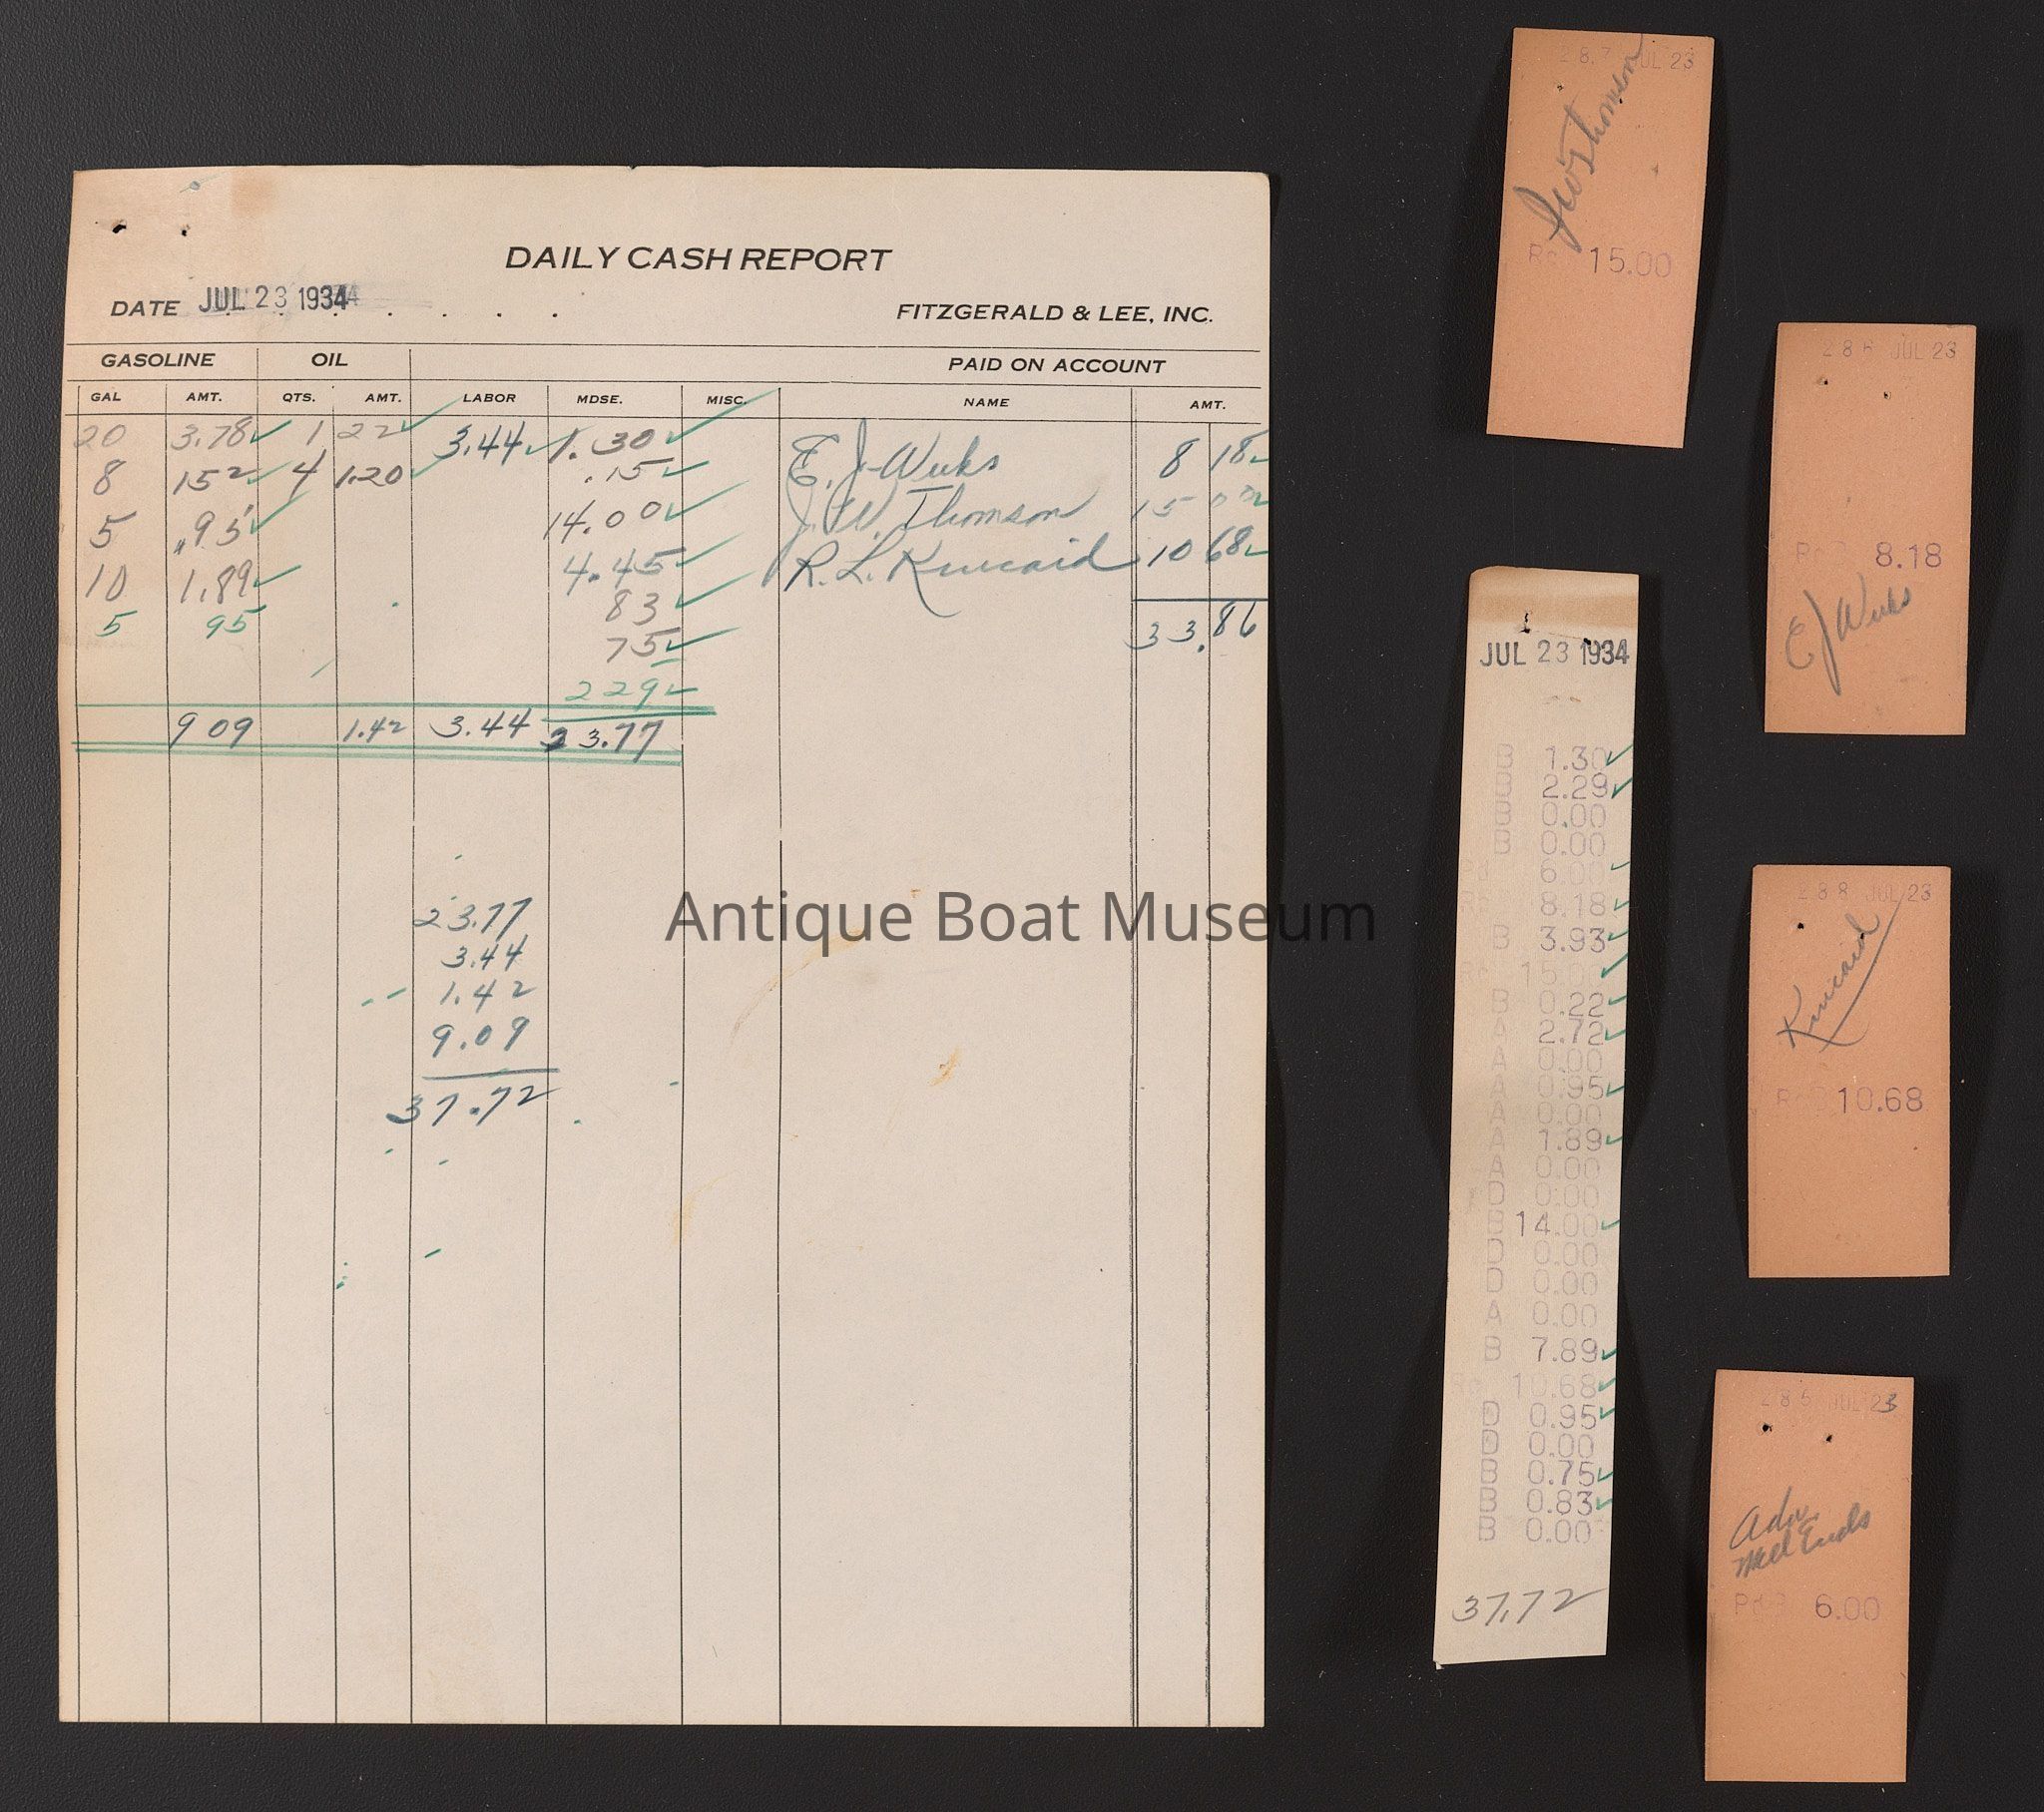 DAILY CASH REPORT
DATE JUL 23 1934
FITZGERALD & LEE, INC.
GASOLINE OIL PAID ON ACCOUNT
GAL AMT. QTS. AMT. LABOR MDSE. MISC. NAME AMT.
20 3.78 1 22 3.44 1.30 E. J. Weeks 8 18
8 152 4 1.20 .15 J. W. Thomson 15 00
5 .95 14.00 R. L. Kincaid 10 68
10 1.89 4.45
5 95 83 33.86
75
229
9 09 1.42 3.44 23.77
23.77
3.44
1.42
9.09
37.72
Antique Boat Museum
287 JUL 23
JW Thomson
15.00
286 JUL 23
8.18
E J Weeks
JUL 23 1934
B 1.30
B 2.29
B 0.00
B 0.00
6.00
8.18
B 3.93
15.00
B 0.22
A 2.72
A 0.00
A 0.95
A 0.00
A 1.89
A 0.00
D 0.00
B 14.00
D 0.00
D 0.00
A 0.00
B 7.89
10.68
D 0.95
D 0.00
B 0.75
B 0.83
B 0.00
37.72
288 JUL 23
Kincaid
10.68
285 JUL 23
Adv.
6.00